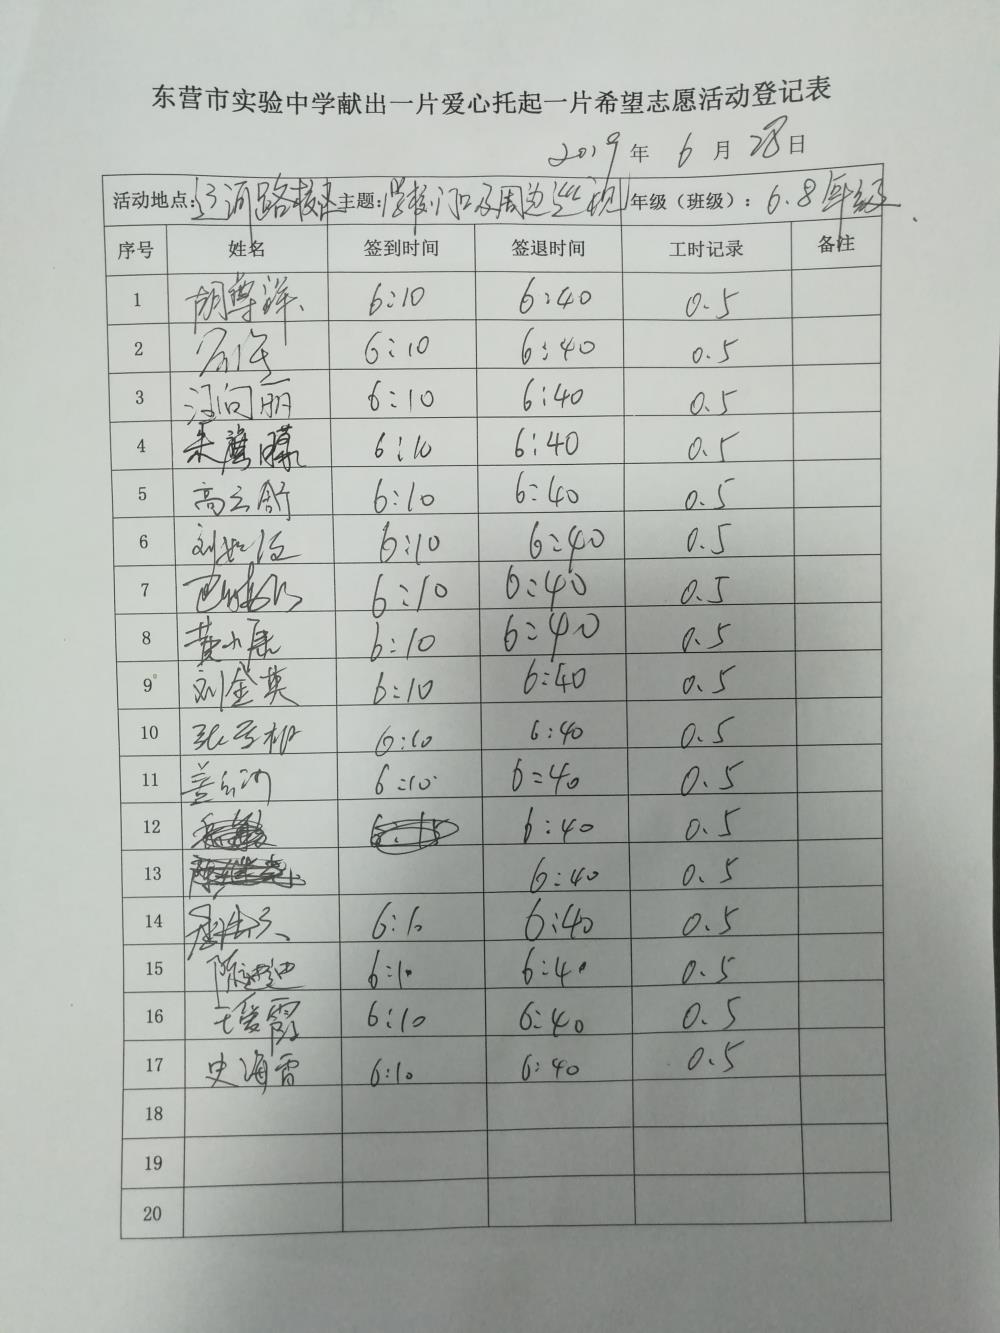 东营市实验中学献出一片爱心托起一片希望志愿活动登记表
2019年 6 月 28日
活动地点: 河路校区 主题: 学校门口及周边巡视 年级（班级）: 6.8年级
序号 姓名 签到时间 签退时间 工时记录 备注
1 胡尊祥 6:10 6:40 0.5
2 6:10 6:40 0.5
3 汪向丽 6:10 6:40 0.5
4 朱腾 6:10 6:40 0.5
5 高云舒 6:10 6:40 0.5
6 刘 6:10 6:40 0.5
7 6:10 6:40 0.5
8 黄小康 6:10 6:40 0.5
9 刘金英 6:10 6:40 0.5
10 张 6:10 6:40 0.5
11 盖 6:10 6:40 0.5
12 6:15 6:40 0.5
13 6:40 0.5
14 6:10 6:40 0.5
15 陈 6:10 6:40 0.5
16 王爱霞 6:10 6:40 0.5
17 史海雷 6:10 6:40 0.5
18
19
20